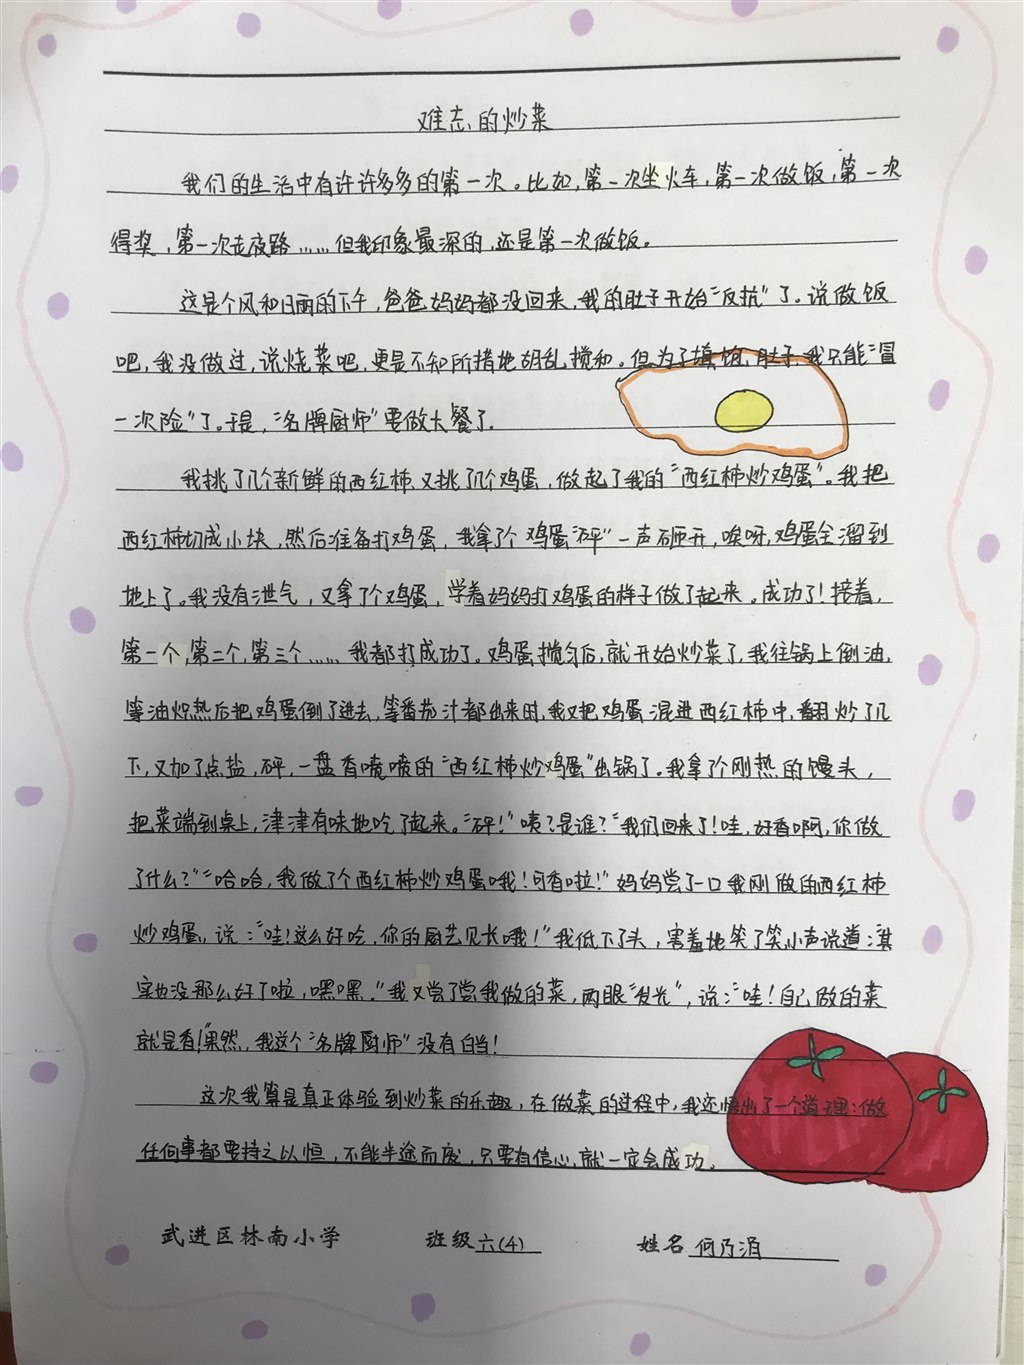 难忘的炒菜
我们的生活中有许许多多的第一次。比如,第一次坐火车,第一次做饭,第一次
得奖,第一次走夜路……但我印象最深的,还是第一次做饭。
这是个风和日丽的下午,爸爸妈妈都没回来,我的肚子开始“反抗”了。说做饭
吧,我没做过,说烧菜吧,更是不知所措地胡乱搅和。但为了填饱肚子,我只能“冒
一次险”了。于是,“名牌厨师”要做大餐了。
我挑了几个新鲜的西红柿,又挑了几个鸡蛋,做起了我的“西红柿炒鸡蛋”。我把
西红柿切成小块,然后准备打鸡蛋,我拿了个鸡蛋“砰”一声砸开,唉呀,鸡蛋全溜到
地上了。我没有泄气,又拿了个鸡蛋,学着妈妈打鸡蛋的样子做了起来。成功了!接着,
第一个,第二个,第三个……我都打成功了。鸡蛋搅匀后,就开始炒菜了,我往锅上倒油,
等油炽热后把鸡蛋倒了进去,等番茄汁都出来时,我又把鸡蛋混进西红柿中,翻炒了几
下,又加了点盐,砰,一盘香喷喷的“西红柿炒鸡蛋”出锅了。我拿了个刚热的馒头,
把菜端到桌上,津津有味地吃了起来。“砰!”咦?是谁?“我们回来了!哇,好香啊,你做
了什么?”“哈哈,我做了个西红柿炒鸡蛋哦!可香啦!”妈妈尝了一口我刚做的西红柿
炒鸡蛋,说:“哇!这么好吃,你的厨艺见长哦!”我低下了头,害羞地笑了笑小声说道:“其
实也没那么好了啦,嘿嘿。”我又尝了尝我做的菜,两眼“发光”,说:“哇!自己做的菜
就是香!”果然,我这个“名牌厨师”没有白当!
这次我算是真正体验到炒菜的乐趣,在做菜的过程中,我还悟出了一个道理:做
任何事都要持之以恒,不能半途而废,只要有信心,就一定会成功。
武进区林南小学 班级六(4) 姓名何乃涓